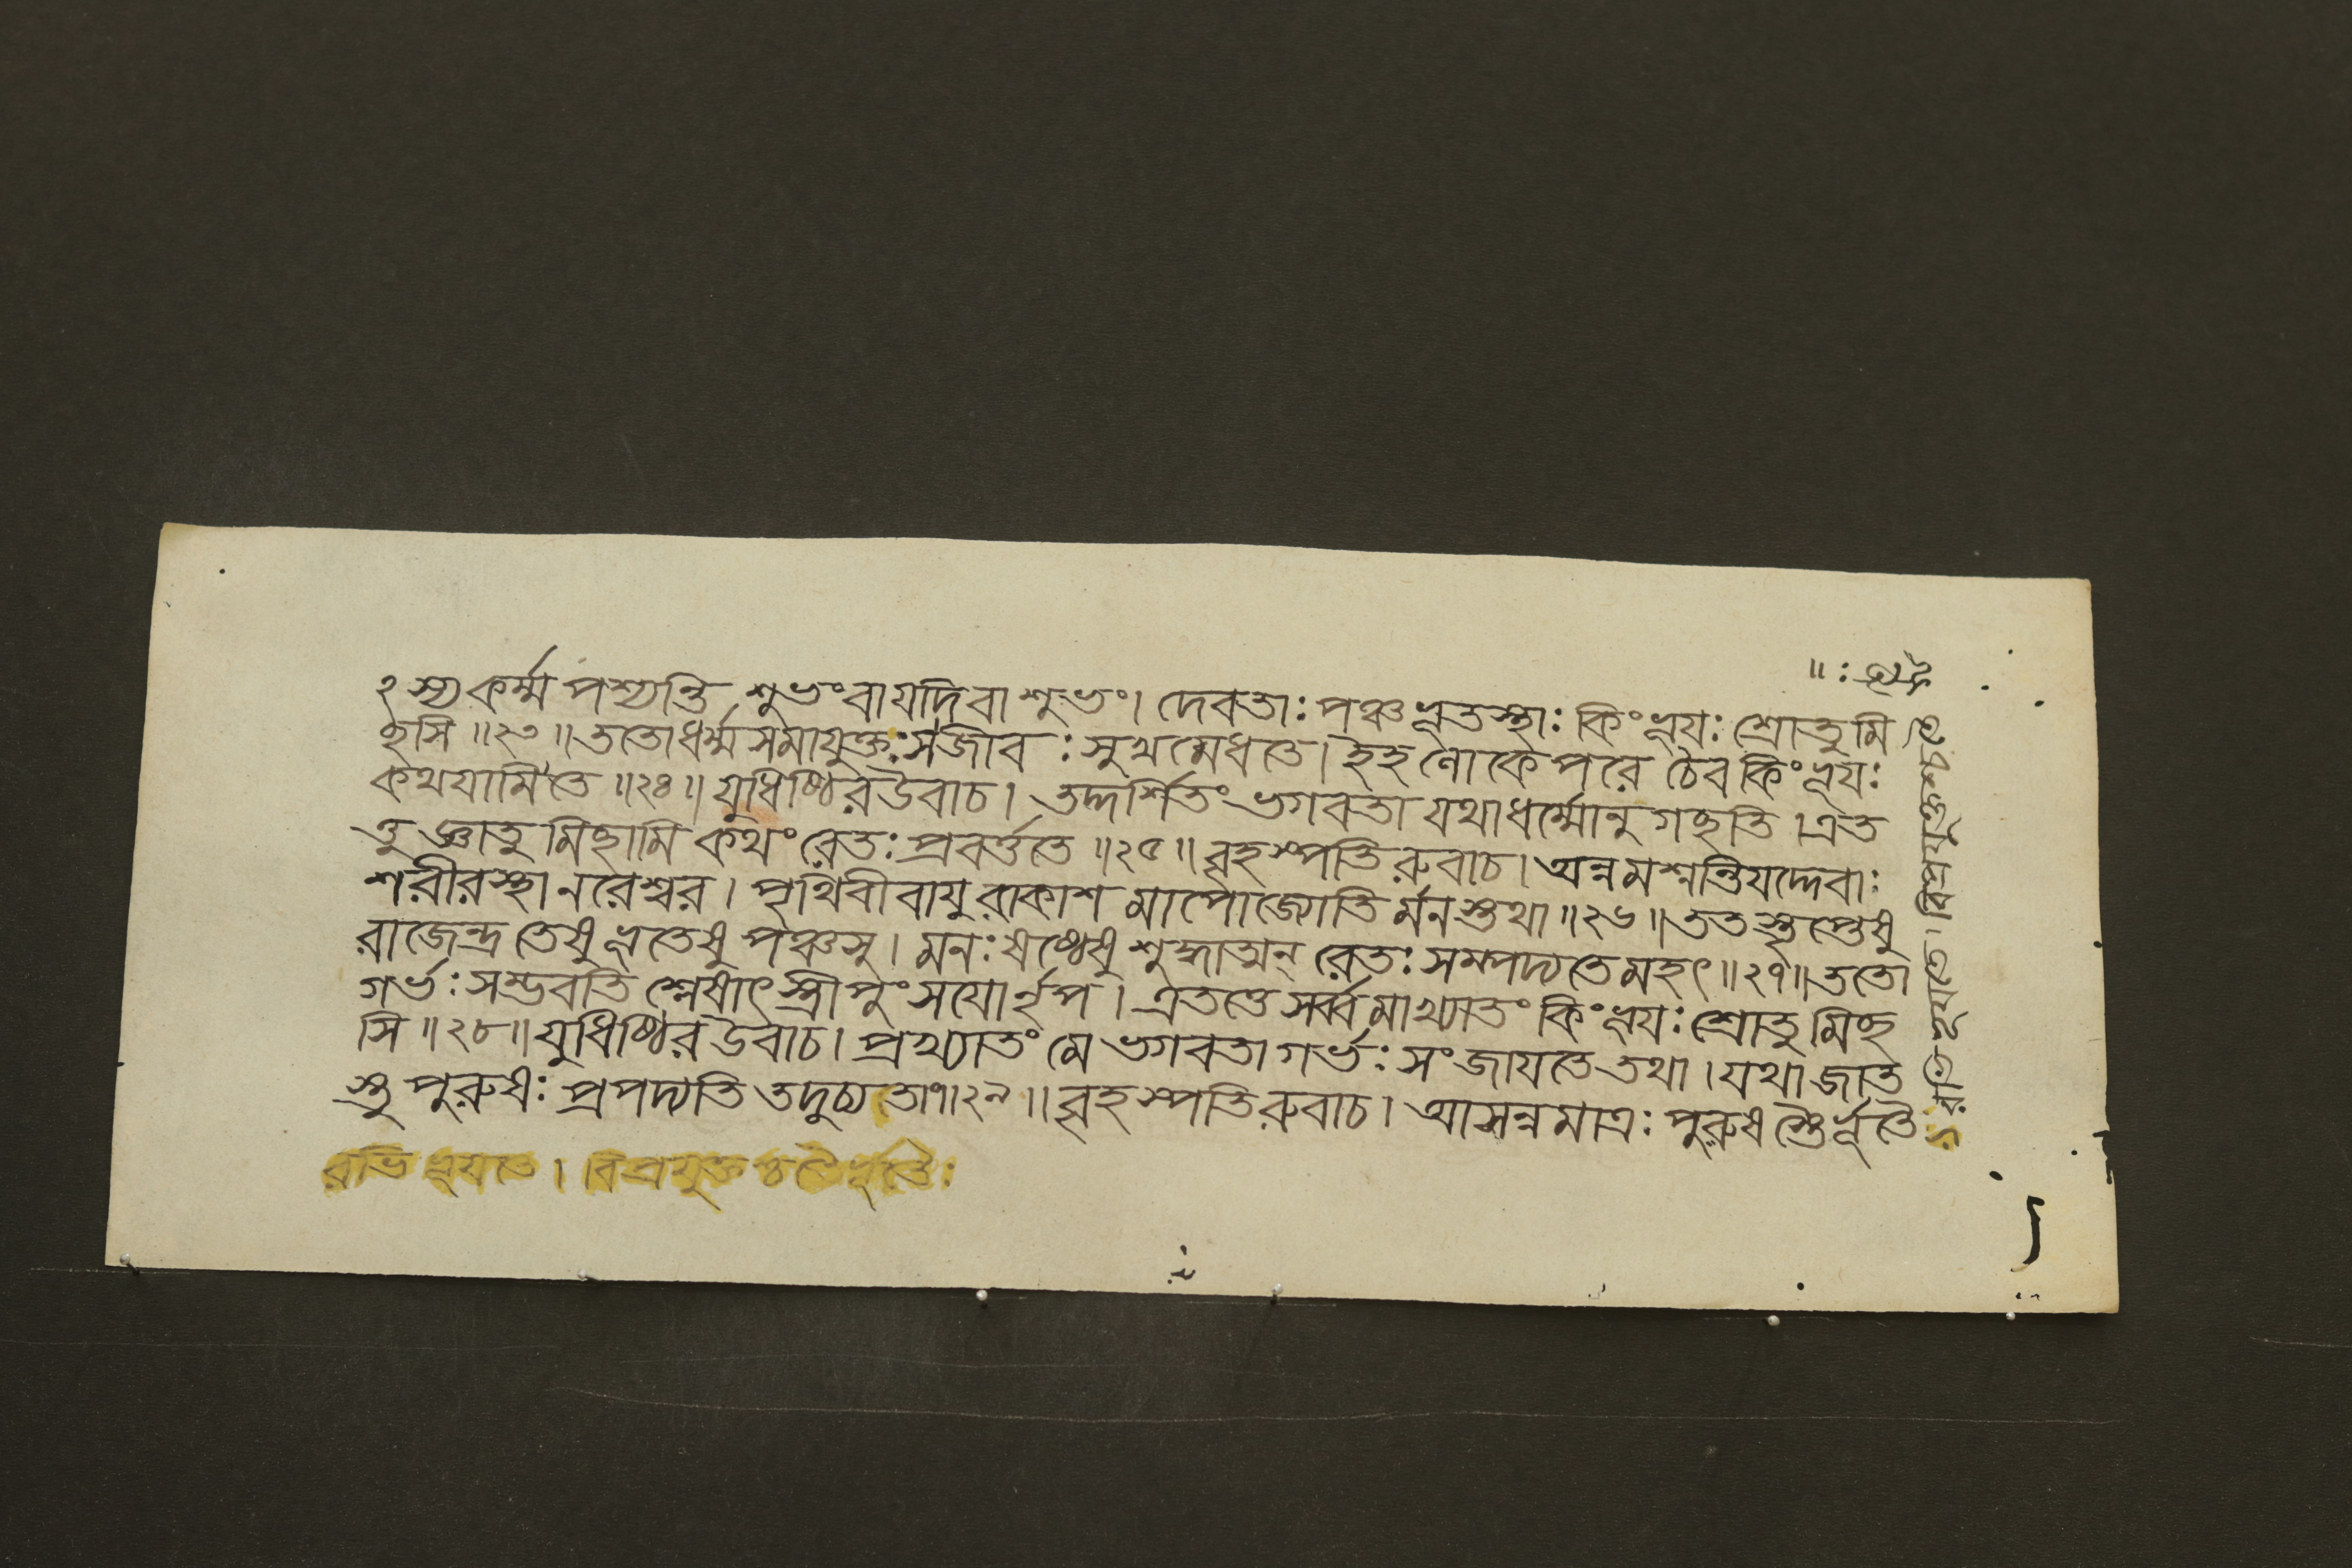 ২স্যকর্ম্ম পশ্যন্তি শুভংবাযদিবাশুভং। দেবতাঃ পঞ্চভূতস্থাঃ কিংভূযঃ শ্রোতুমি
ছসি॥২৩॥ততোধর্ম্মসমাযুক্তঃসজীবঃ সুখমেধতে। ইহলোকেপরে চৈব কিংভূযঃ
কথযামিতে॥২৪॥ যুধিষ্ঠিরউবাচ। তদ্দর্শিতং ভগবতা যথাধর্ম্মোনুগছতি। এত
ত্তু জ্ঞাতুমিছামি কথং রেতঃ প্রবর্ত্ততে॥২৫॥বৃহস্পতিরুবাচ। অন্নমশ্নন্তিযদ্দেবাঃ
শরীরস্থানরেশ্বর। পৃথিবীবাযুরাকাশমাপোজ্যোতির্মনস্তথা॥২৬॥ততস্তৃপ্তেষু
রাজেন্দ্র তেষু ভূতেষু পঞ্চসু। মনঃষষ্ঠেষু শুদ্ধাত্মন্ রেতঃ সম্পদ্যতেমহৎ॥২৭॥ততো
গর্ভঃসম্ভবতি শ্লেষাৎ স্ত্রীপুংসযোর্নৃপ। এতত্তে সর্ব্বমাখ্যাতং কিংভূযঃ শ্রোতুমিছ
সি॥২৮॥যুধিষ্ঠিরউবাচ। প্রখ্যাতং মে ভগবতা গর্ভঃ সংজাযতে তথা। যথাজাত
স্তু পুরুষঃ প্রপদ্যতি তদুচ্যতা৭॥২৯॥ বৃহস্পতিরুবাচ। আসন্নমাত্রঃ পুরুষস্তৈর্ভূতৈ
রভিভূযতে। বিপ্রযুক্তশ্চতৈর্ভূতৈঃ